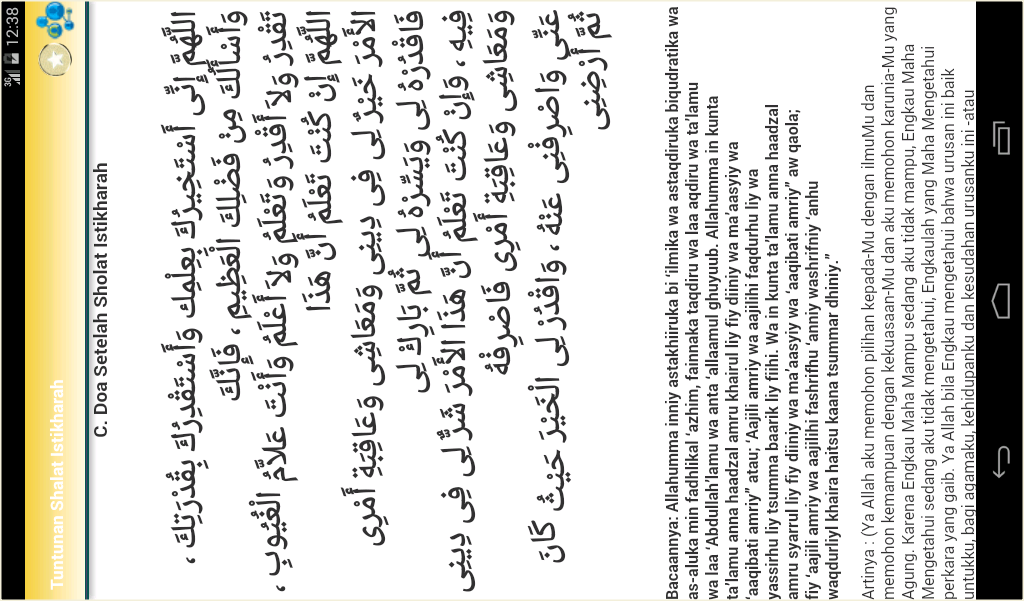 3G 12:38
Tuntunan Shalat Istikharah
C. Doa Setelah Sholat Istikharah
اَللّٰهُمَّ إِنِّى أَسْتَخِيْرُكَ بِعِلْمِكَ وَأَسْتَقْدِرُكَ بِقُدْرَتِكَ ،
وَأَسْأَلُكَ مِنْ فَضْلِكَ الْعَظِيْمِ ، فَإِنَّكَ
تَقْدِرُ وَلَا أَقْدِرُ وَتَعْلَمُ وَلَا أَعْلَمُ وَأَنْتَ عَلَّامُ الْغُيُوْبِ ،
اَللّٰهُمَّ إِنْ كُنْتَ تَعْلَمُ أَنَّ هَذَا
الْأَمْرَ خَيْرٌ لِى فِى دِيْنِى وَمَعَاشِى وَعَاقِبَةِ أَمْرِى
فَاقْدُرْهُ لِى وَيَسِّرْهُ لِى ثُمَّ بَارِكْ لِى
فِيْهِ ، وَإِنْ كُنْتَ تَعْلَمُ أَنَّ هَذَا الْأَمْرَ شَرٌّ لِى فِى دِيْنِى
وَمَعَاشِى وَعَاقِبَةِ أَمْرِى فَاصْرِفْهُ
عَنِّى وَاصْرِفْنِى عَنْهُ ، وَاقْدُرْ لِى الْخَيْرَ حَيْثُ كَانَ
ثُمَّ أَرْضِنِى
Bacaannya: Allahumma inniy astakhiiruka bi ‘ilmika wa astaqdiruka biqudratika wa
as-aluka min fadhlikal ‘azhim, fainnaka taqdiru wa laa aqdiru wa ta’lamu
wa laa ‘Abdullah’lamu wa anta ‘allaamul ghuyuub. Allahumma in kunta
ta’lamu anna haadzal amru khairul liy fiy diiniy wa ma’aasyiy wa
‘aaqibati amriy” atau; ‘Aajili amriy wa aajilihi faqdurhu liy wa
yassirhu liy tsumma baarik liy fiihi. Wa in kunta ta’lamu anna haadzal
amru syarrul liy fiy diiniy wa ma’aasyiy wa ‘aaqibati amriy” aw qaola;
fiy ‘aajili amriy wa aajilihi fashrifhu ‘anniy washrifniy ‘anhu
waqdurliyl khaira haitsu kaana tsummar dhiniy.”
Artinya : (Ya Allah aku memohon pilihan kepada-Mu dengan ilmuMu dan
memohon kemampuan dengan kekuasaan-Mu dan aku memohon karunia-Mu yang
Agung. Karena Engkau Maha Mampu sedang aku tidak mampu, Engkau Maha
Mengetahui sedang aku tidak mengetahui, Engkaulah yang Maha Mengetahui
perkara yang gaib. Ya Allah bila Engkau mengetahui bahwa urusan ini baik
untukku, bagi agamaku, kehidupanku dan kesudahan urusanku ini -atau